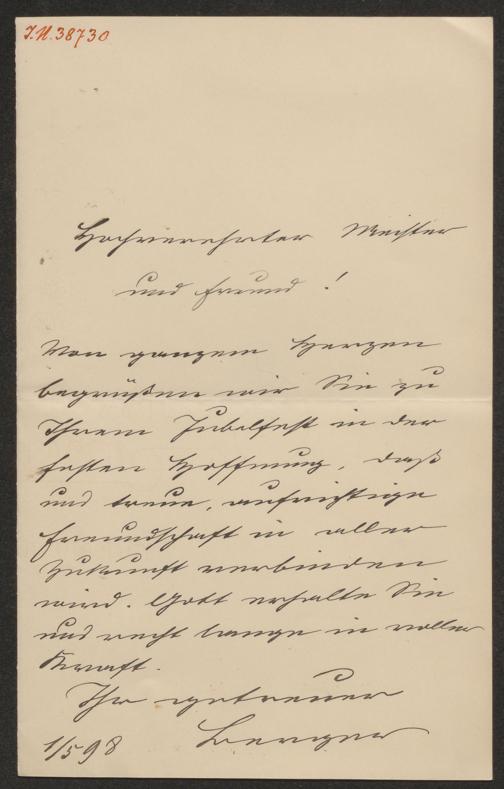 I.N.38730
Hochverehrter Meister
und Freund!
Von ganzem Herzen
begrüßen wir Sie zu
Ihrem Jubelfest in der
festen Hoffnung, daß
uns treue, aufrichtige
Freundschaft in aller
Zukunft verbinden
wird. Gott erhalte Sie
uns recht lange in voller
Kraft.
Ihr getreuer
Berger
1/5 98